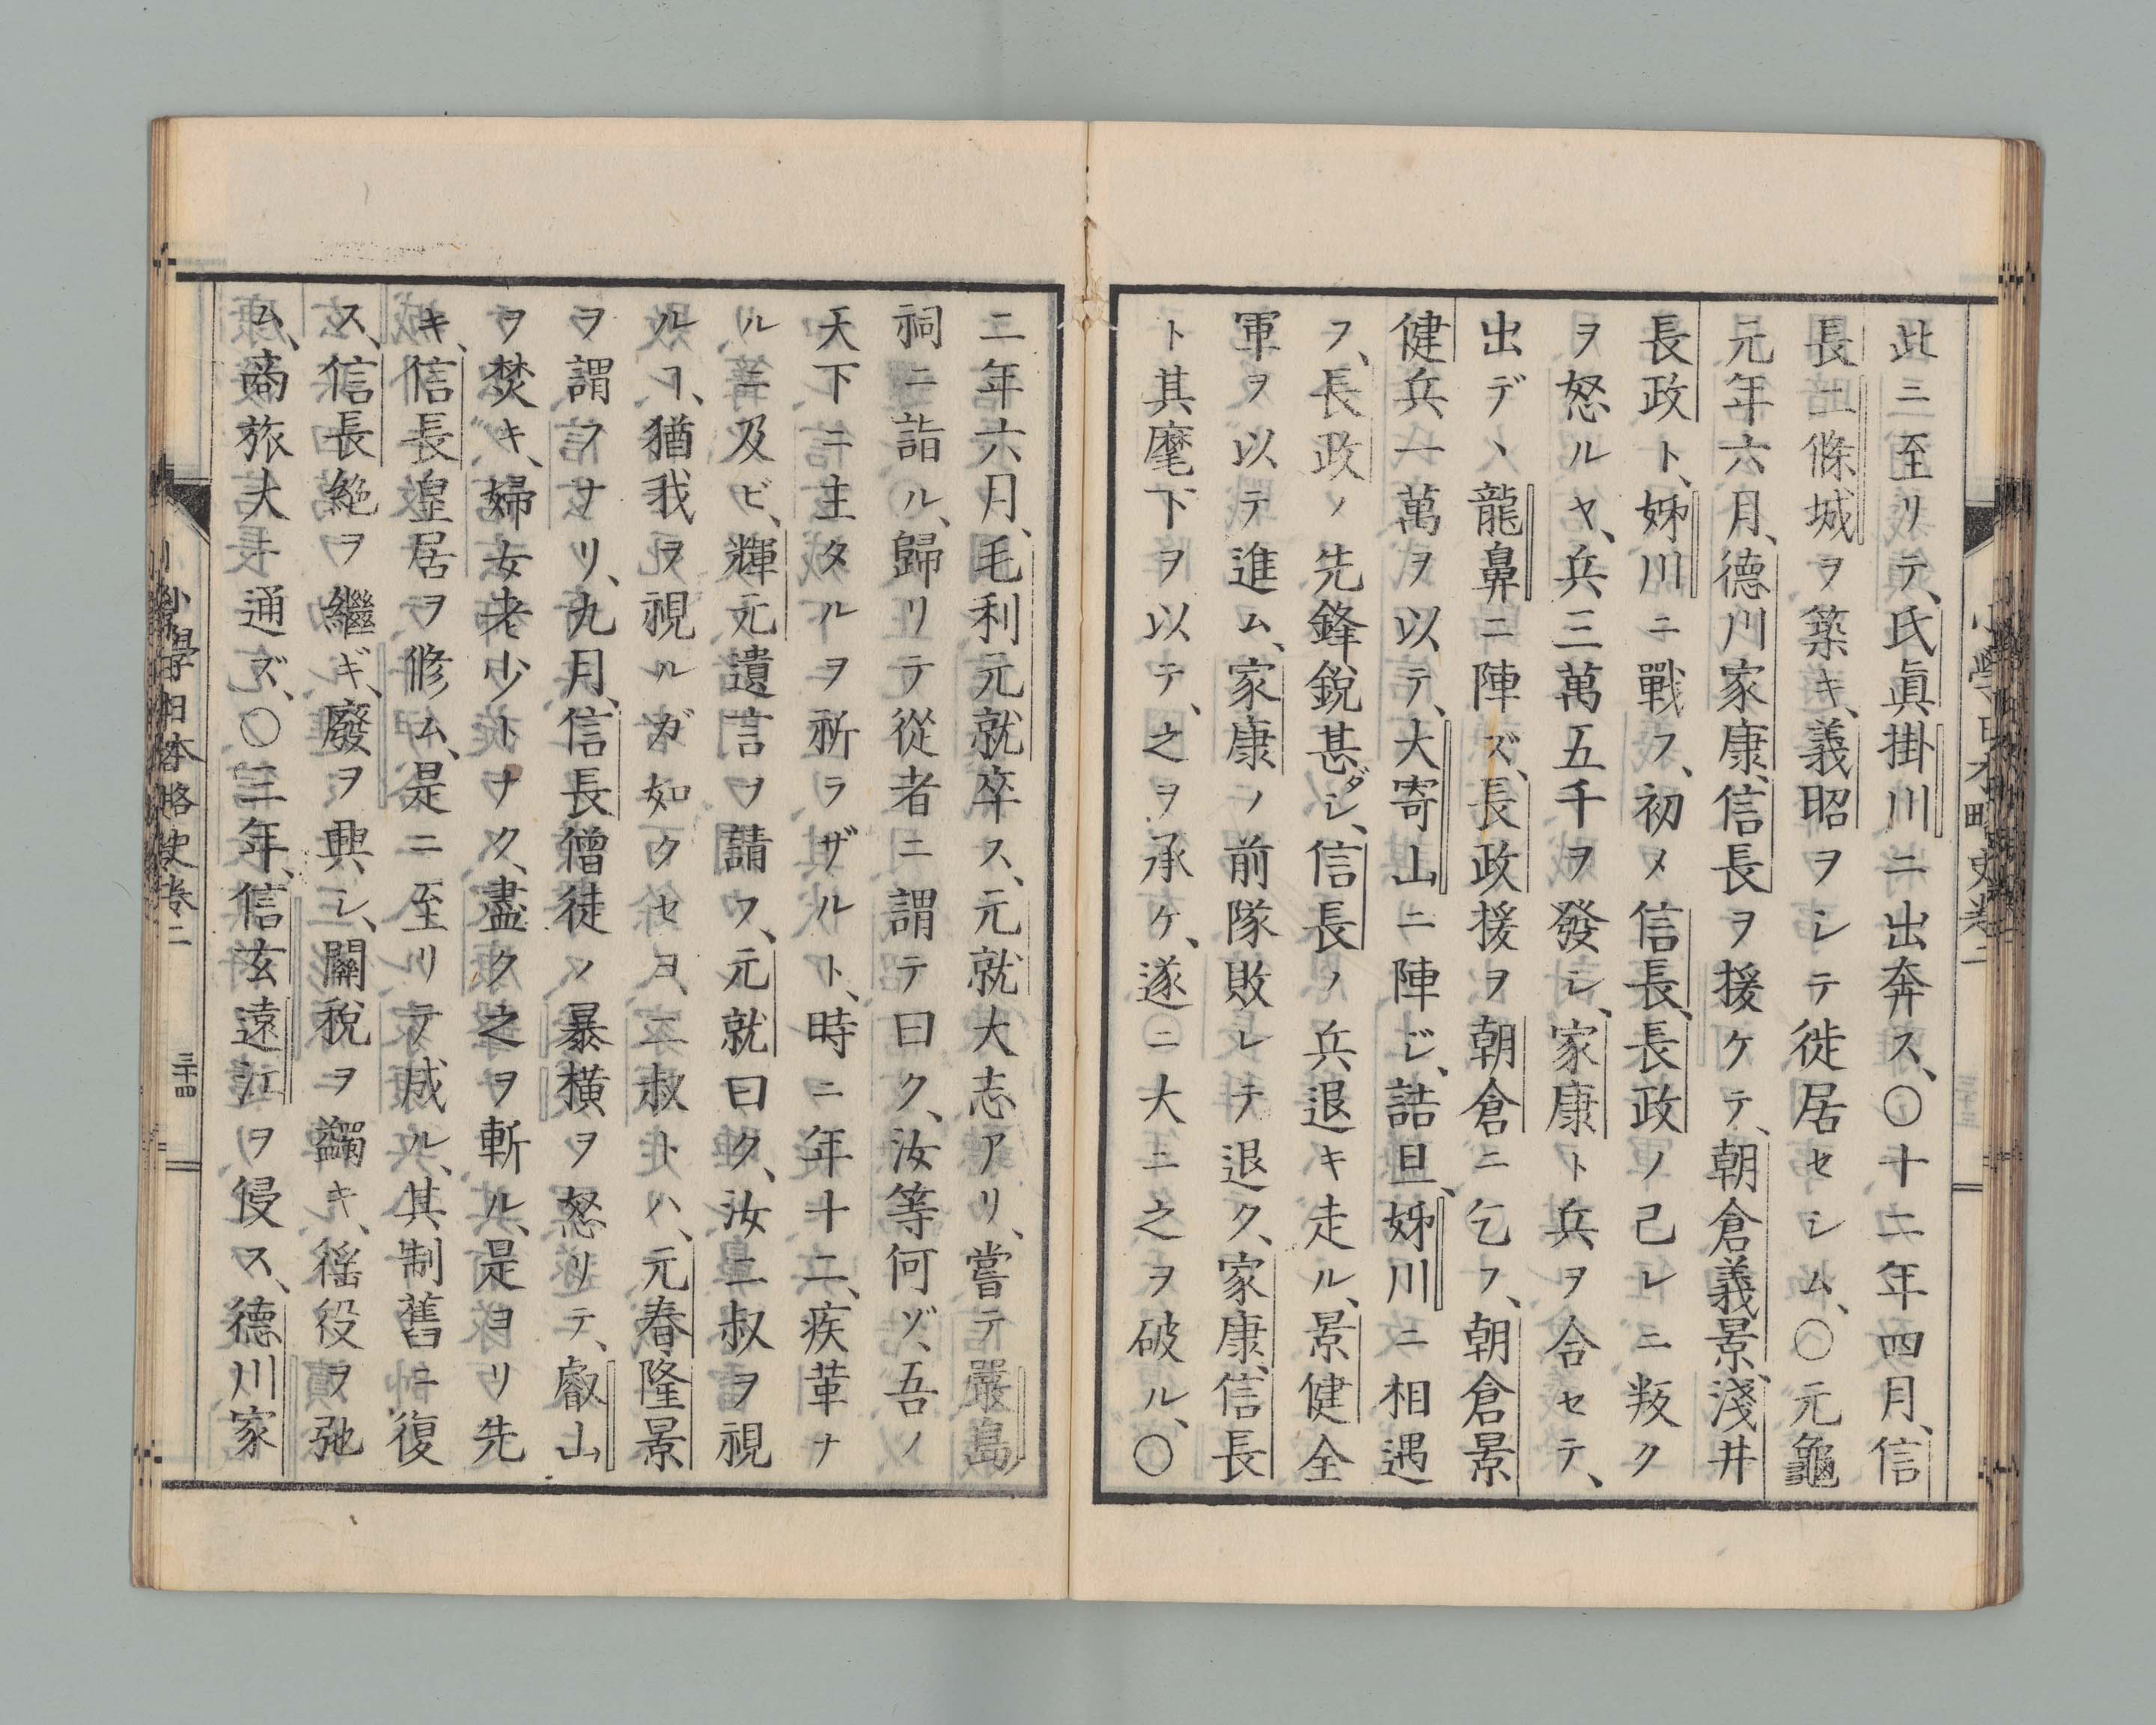 此ニ至リテ、氏眞掛川ニ出奔ス、〇十二年四月、信
長二條城ヲ築キ、義昭ヲシテ徙居セシム、〇元龜
元年六月、德川家康、信長ヲ援ケテ、朝倉義景、淺井
長政ト、姊川ニ戰フ、初メ信長、長政ノ己レニ叛ク
ヲ怒ルヤ、兵三萬五千ヲ發シ、家康ト兵ヲ合セテ、
出デヽ龍鼻ニ陣ズ、長政援ヲ朝倉ニ乞フ、朝倉景
健兵一萬ヲ以テ、大寄山ニ陣ジ、詰旦、姊川ニ相遇
フ、長政ノ先鋒銳甚ダシ、信長ノ兵退キ走ル、景健全
軍ヲ以テ進ム、家康ノ前隊敗レテ退ク、家康、信長
ト其麾下ヲ以テ、之ヲ承ケ、遂ニ大ニ之ヲ破ル、〇
二年六月、毛利元就卒ス、元就大志アリ、嘗テ嚴島ノ
祠ニ詣ル、歸リテ從者ニ謂テ曰ク、汝等何ヅ、吾ノ
天下ニ主タルヲ祈ラザルト、時ニ年十二、疾革ナ
ルニ及ビ、輝元遺言ヲ請フ、元就曰ク、汝二叔ヲ視
ルヿ、猶我ヲ視ルガ如クセヨ、二叔トハ、元春隆景
ヲ謂フナリ、九月、信長僧徒ノ暴橫ヲ怒リテ、叡山
ヲ焚キ、婦女老少トナク、盡ク之ヲ斬ル、是ヨリ先
キ、信長皇居ヲ修ム、是ニ至リテ成ル、其制舊ニ復
ス、信長絕ヲ繼ギ、廢ヲ興シ、關稅ヲ蠲キ、徭役ヲ弛
ム、商旅大ニ通ズ、〇三年、信玄遠江ヲ侵ス、德川家
小學日本略史卷二
三十四